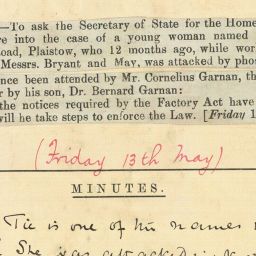 —To ask the Secretary of State for the Home
re into the case of a young woman named
oad, Plaistow, who 12 months ago, while wor
Messrs. Bryant and May, was attacked by phos
nce been attended by Mr. Cornelius Garnan, th
r by his son, Dr. Bernard Garnan:
the notices required by the Factory Act have
will he take steps to enforce the Law. [Friday 1
(Friday 13th May)
MINUTES.
Tie is one of his names
She was attacked in